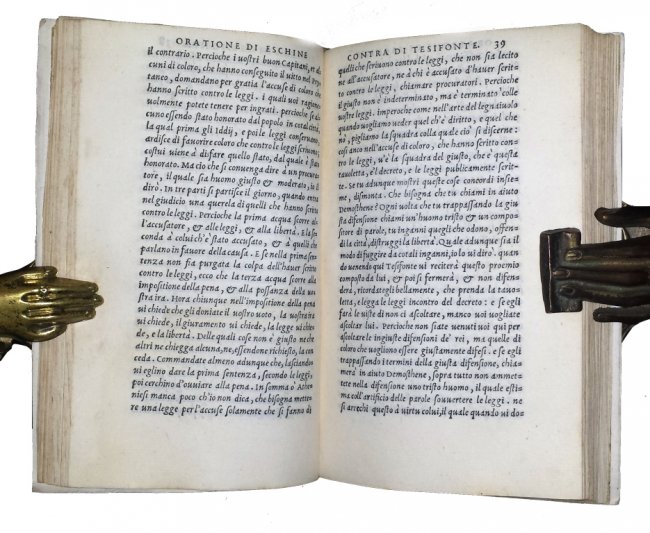 ORATIONE DI ESCHINE
il contrario. Percioche i uostri buon Capitani, et al
cuni di coloro, che hanno conseguito il uitto nel Pry
taneo, domandano per gratia l'accuse di coloro che
hanno scritto contro le leggi. i quali voi ragione
uolmente potete tener per ingrati. percioche s'al
cuno essendo stato honorato dal popolo in cotal città,
la qual prima gli Iddij, e poi le leggi conseruano,
ardisce di fauorire coloro che contro le leggi scriuono;
costui uiene à disfare quello stato, dal quale è stato
honorato. Ma cio che si conuenga dire à un procura
tore, il quale sia huomo giusto & moderato, io il
dirò. In tre parti si partisce il giorno, quando entra
nel giudicio una querela di quelli che hanno scritto
contro le leggi. Percioche la prima acqua scorre al
l'accusatore, & alle leggi, & alla libertà. E la se
conda à colui ch'è stato accusato, & à quelli che
parlano in fauore della causa. E se nella prima sen
tenza non sia purgata la colpa dell'hauer scritto
contro le leggi, ecco che la terza acqua scorre alla
impositione della pena, & alla possanza della uo
stra ira. Hora chiunque nell'impositione della pena
ui chiede che gli doniate il uostro uoto, la uostra ira
ui chiede, il giuramento ui chiede, la legge ui chie
de, e la libertà. Delle quali cose non è giusto ne che
altri ne chiegga alcuna, ne, essendone richiesto, la con
ceda. Commandate almeno adunque che, lasciando
ui eglino dare la prima sentenza, secondo le leggi,
poi cerchino d'ouuiare alla pena. In somma o' Athe
niesi manca poco ch'io non dica, che bisogna mette
re una legge per l'accuse solamente che si fanno di
CONTRA DI TESIFONTE. 39
quelli che scriuono contro le leggi, che non sia lecito
ne all'accusatore, ne à chi è accusato d'hauer scritto
contro le leggi, chiamare procuratori. Percioche
il giusto non è indeterminato, ma è terminato colle
uostre leggi. imperoche come nell'arte del legnaiuolo
quando uogliamo ueder quel ch'è diritto, e quel che
nò, pigliamo la squadra colla quale ciò si discerne:
cosi anco nell'accuse di coloro, che hanno scritto con
tro le leggi, u'è la squadra del giusto, che è questa
tauoletta, e'l decreto, e le leggi publicamente scrit
te. Se tu adunque mostri queste cose concordi insie
me, dismonta. Che bisogna che tu chiami in aiuto
Demosthene? Ogni uolta che tu trappassando la giu
sta difensione chiami un'huomo tristo & un compos
tore di parole, tu inganni quegli che odono, offendi
la città, distruggi la libertà. Quale adunque sia il mo
do di fuggire da cotali inganni, io lo ui dirò. quan
do uenendo quì Tesifonte ui reciterà questo proemio
composto da lui, & poi si fermerà, e non difen
derà, ricordategli chetamente, che prenda la tauo
letta, e legga le leggi incontro del decreto: e se egli
farà le uiste di non ci ascoltare, manco uoi uogliate
ascoltar lui. Percioche non siate uenuti uoi quì per
ascoltare le ingiuste difensioni de' rei, ma quelle di
coloro che uogliono essere giustamente difesi. e se egli
trappassando i termini della giusta difensione, chia
merà in aiuto Demosthene, sopra tutto non ammet
tete nella difensione uno tristo huomo, il quale esti
ma coll'artificio delle parole souuertere le leggi. ne
si arrechi questo à virtu colui, il quale quando ui do=